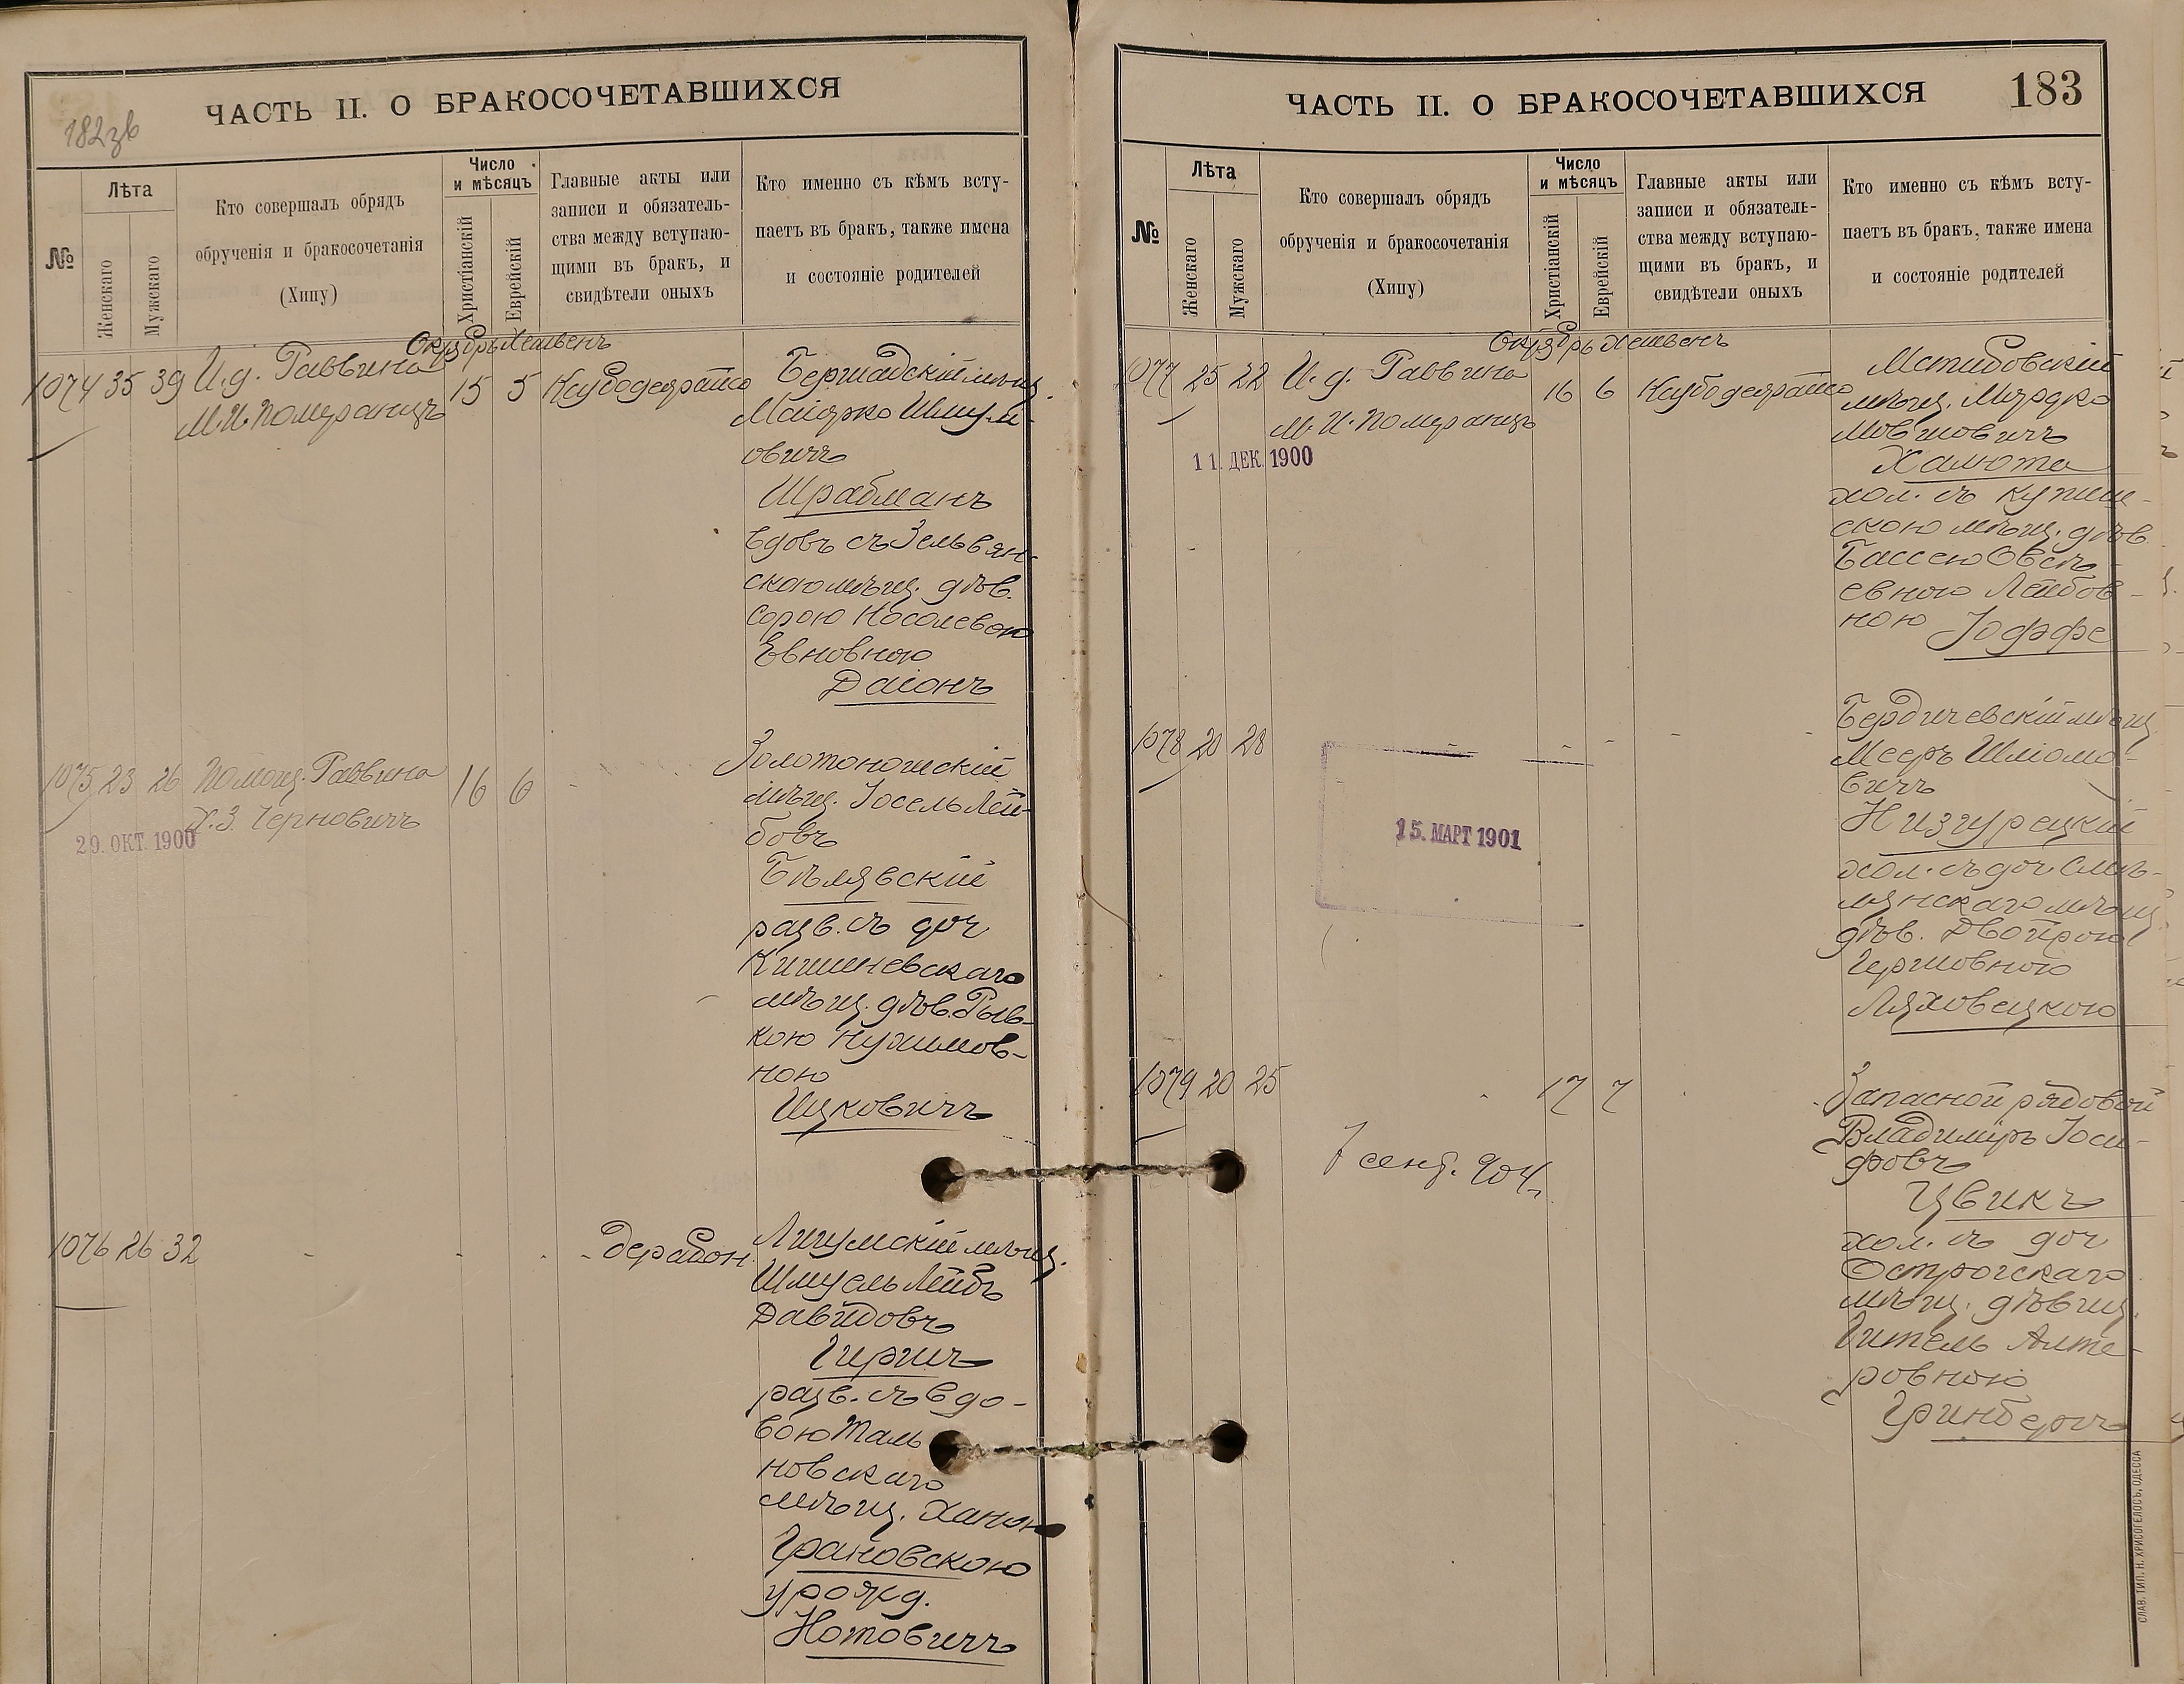 182зв
ЧАСТЬ II. О БРАКОСОЧЕТАВШИХСЯ
№
Лѣта
Женскаго
Мужскаго
Кто совершалъ обрядъ
обрученія и бракосочетанія
(Хипу)
Число
и мѣсяцъ
Христіанскій
Еврейскій
Главные акты или
записи и обязатель-
ства между вступаю-
щими въ бракъ, и
свидѣтели оныхъ
Кто именно съ кѣмъ всту-
паетъ въ бракъ, также имена
и состояніе родителей
Октябрь Хешвенъ
1074 35 39 И.д. Раввина 15 5
М.И. Померанцъ
Бершадскій мѣщ.
Шмуль-
овичъ
Шрабманъ
вдовъ съ Зельвян-
скою мѣщ. дѣв.
Сорою
Евновною
Даіонъ
1075 23 26 Помощ. Раввина 16 6 -
Х.З. Черновичъ
29. ОКТ. 1900
Золотоношскій
мѣщ. Іосель Лей-
бовъ
Бѣлявскій
разв. съ доч
Кишиневскаго
мѣщ. дѣв. Рыв-
кою Нухимов-
ною
Ицковичъ
1076 26 32 - - - -
Мѣщ.
Шмуель Лейбъ
Давидовъ
Гирш
разв. съ вдо-
вою Таль
новскаго
мѣщ. Ханою
Грановскою
урожд.
Нотовичъ
ЧАСТЬ II. О БРАКОСОЧЕТАВШИХСЯ
183
№
Лѣта
Женскаго
Мужскаго
Кто совершалъ обрядъ
обрученія и бракосочетанія
(Хипу)
Число
и мѣсяцъ
Христіанскій
Еврейскій
Главные акты или
записи и обязатель-
ства между вступаю-
щими въ бракъ, и
свидѣтели оныхъ
Кто именно съ кѣмъ всту-
паетъ въ бракъ, также имена
и состояніе родителей
Октябрь Хешвенъ
1077 25 22 И.д. Раввина 16 6
М.И. Померанцъ
11. ДЕК. 1900
Мстибовскій
мѣщ. Мордко
Мовшовичъ
Халюта
хол. съ
скою мѣщ. дѣв.
Бассею Овсѣ-
евною Лейбов-
ною Іоффе
1078 20 28 - - - -
15. МАРТ 1901
Бердичевскій мѣщ
Мееръ Шліомо-
вичъ
Низгурецкій
хол. съ доч. Смѣ-
лянскаго мѣщ
дѣв. Двойрою
Гершовною
Ляховецкою
1079 20 25 17 7
7 сент. 904 г.
Запасной рядовой
Владиміръ Іоси-
фовъ
Цвикъ
хол. съ доч
Острогскаго
мѣщ. дѣвиц.
Гитель Алте-
ровною
Гринбергъ
СЛАВ. ТИП. Н. ХРИСОГЕЛОСЪ, ОДЕССА